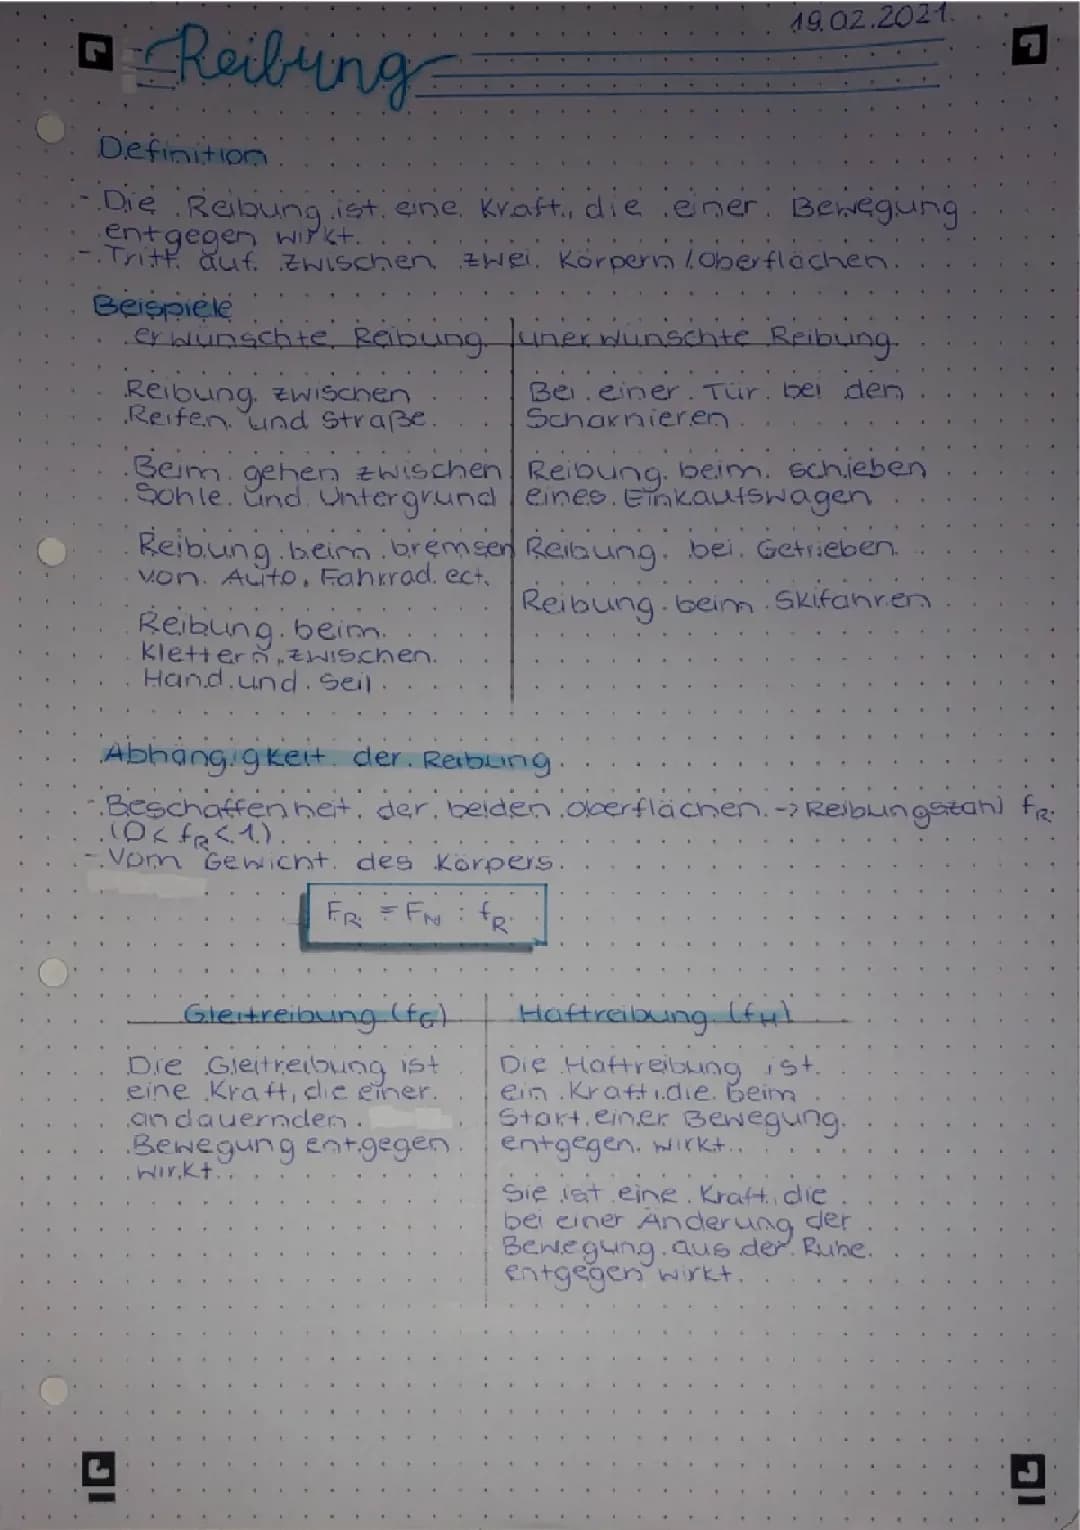 19.02.2021.
Reibung
Definition
- Die Reibung ist eine Kraft, die einer Bewegung
entgegen wirkt.
- Tritt auf zwischen zwei Körpern / Oberflächen.
Beispiele
erwünschte Reibung
Reibung zwischen
Reifen und Straße.
Beim gehen zwischen
Sohle und Untergrund
Reibung beim bremsen
von Auto, Fahrrad ect.
Reibung beim
Klettern zwischen
Hand und Seil.
unerwünschte Reibung
Bei einer Tür bei den
Scharnieren
Reibung beim schieben
eines Einkaufswagen
Reibung bei Getrieben
Reibung beim Skifahren
Abhängigkeit der Reibung
- Beschaffenheit der beiden Oberflächen -> Reibungszahl fR
(0 < fR < 1)
- Vom Gewicht des Körpers.
FR = FN : fR
Gleitreibung (fG)
Die Gleitreibung ist
eine Kraft, die einer
andauernden
Bewegung entgegen
wirkt.
Haftreibung (fH)
Die Haftreibung ist
ein Kraft, die beim
Start einer Bewegung
entgegen wirkt.
Sie ist eine Kraft, die
bei einer Änderung der
Bewegung aus der Ruhe
entgegen wirkt.